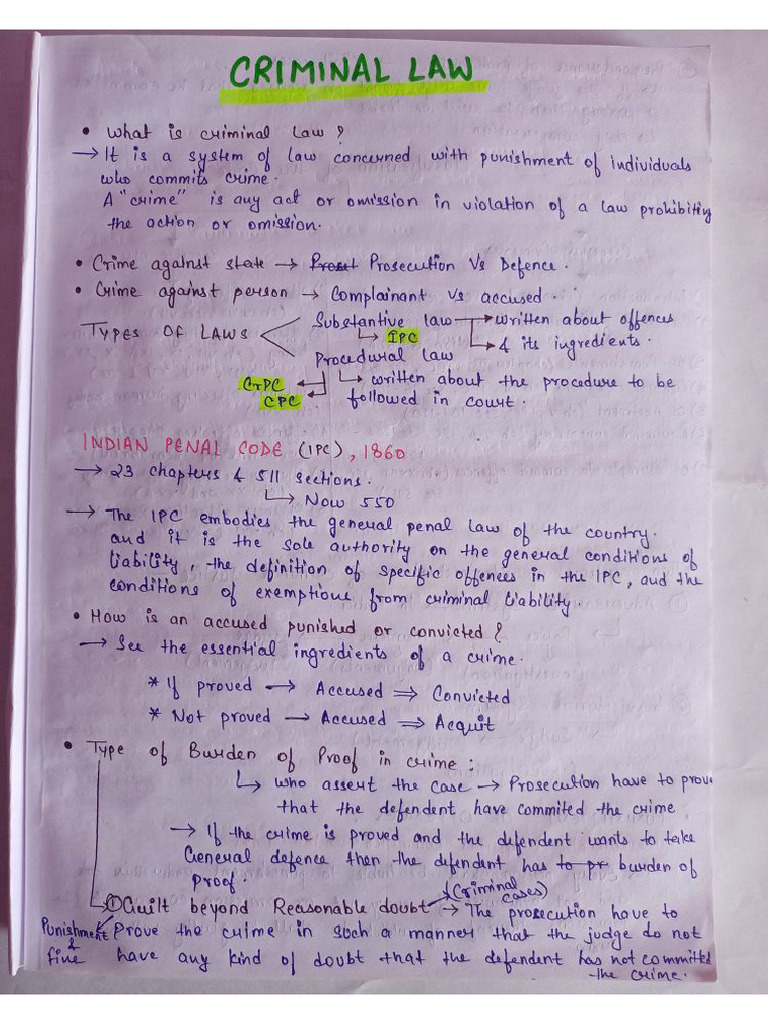 CRIMINAL LAW
• What is criminal law?
→ It is a system of law concerned with punishment of individuals
who commits crime.
A "crime" is any act or omission in violation of a law prohibiting
the action or omission.
• Crime against state → Prosecution Vs Defence.
• Crime against person → Complainant vs accused.
TYPES OF LAWS
Substantive law → written about offences
IPC
& its ingredients.
Procedural law
CrPC
CPC
→ written about the procedure to be
followed in court.
INDIAN PENAL CODE (IPC), 1860
→ 23 chapters & 511 sections.
→ Now 550
→ The IPC embodies the general penal law of the country.
and it is the sole authority on the general conditions of
liability, the definition of specific offences in the IPC, and the
conditions of exemptions from criminal liability.
• How is an accused punished or convicted?
→ See the essential ingredients of a crime.
* If proved → Accused ⇒ Convicted
* Not proved → Accused ⇒ Acquit
• Type of Burden of Proof in crime:
→ who assert the case → Prosecution have to prove
that the defendent have commited the crime
→ If the crime is proved and the defendent wants to take
General defence then the defendent has to pr burden of
Proof.
(Criminal cases)
① Guilt beyond Reasonable doubt → The prosecution have to
Punishment & fine
Prove the crime in such a manner that the judge do not
have any kind of doubt that the defendent has not committed
the crime.